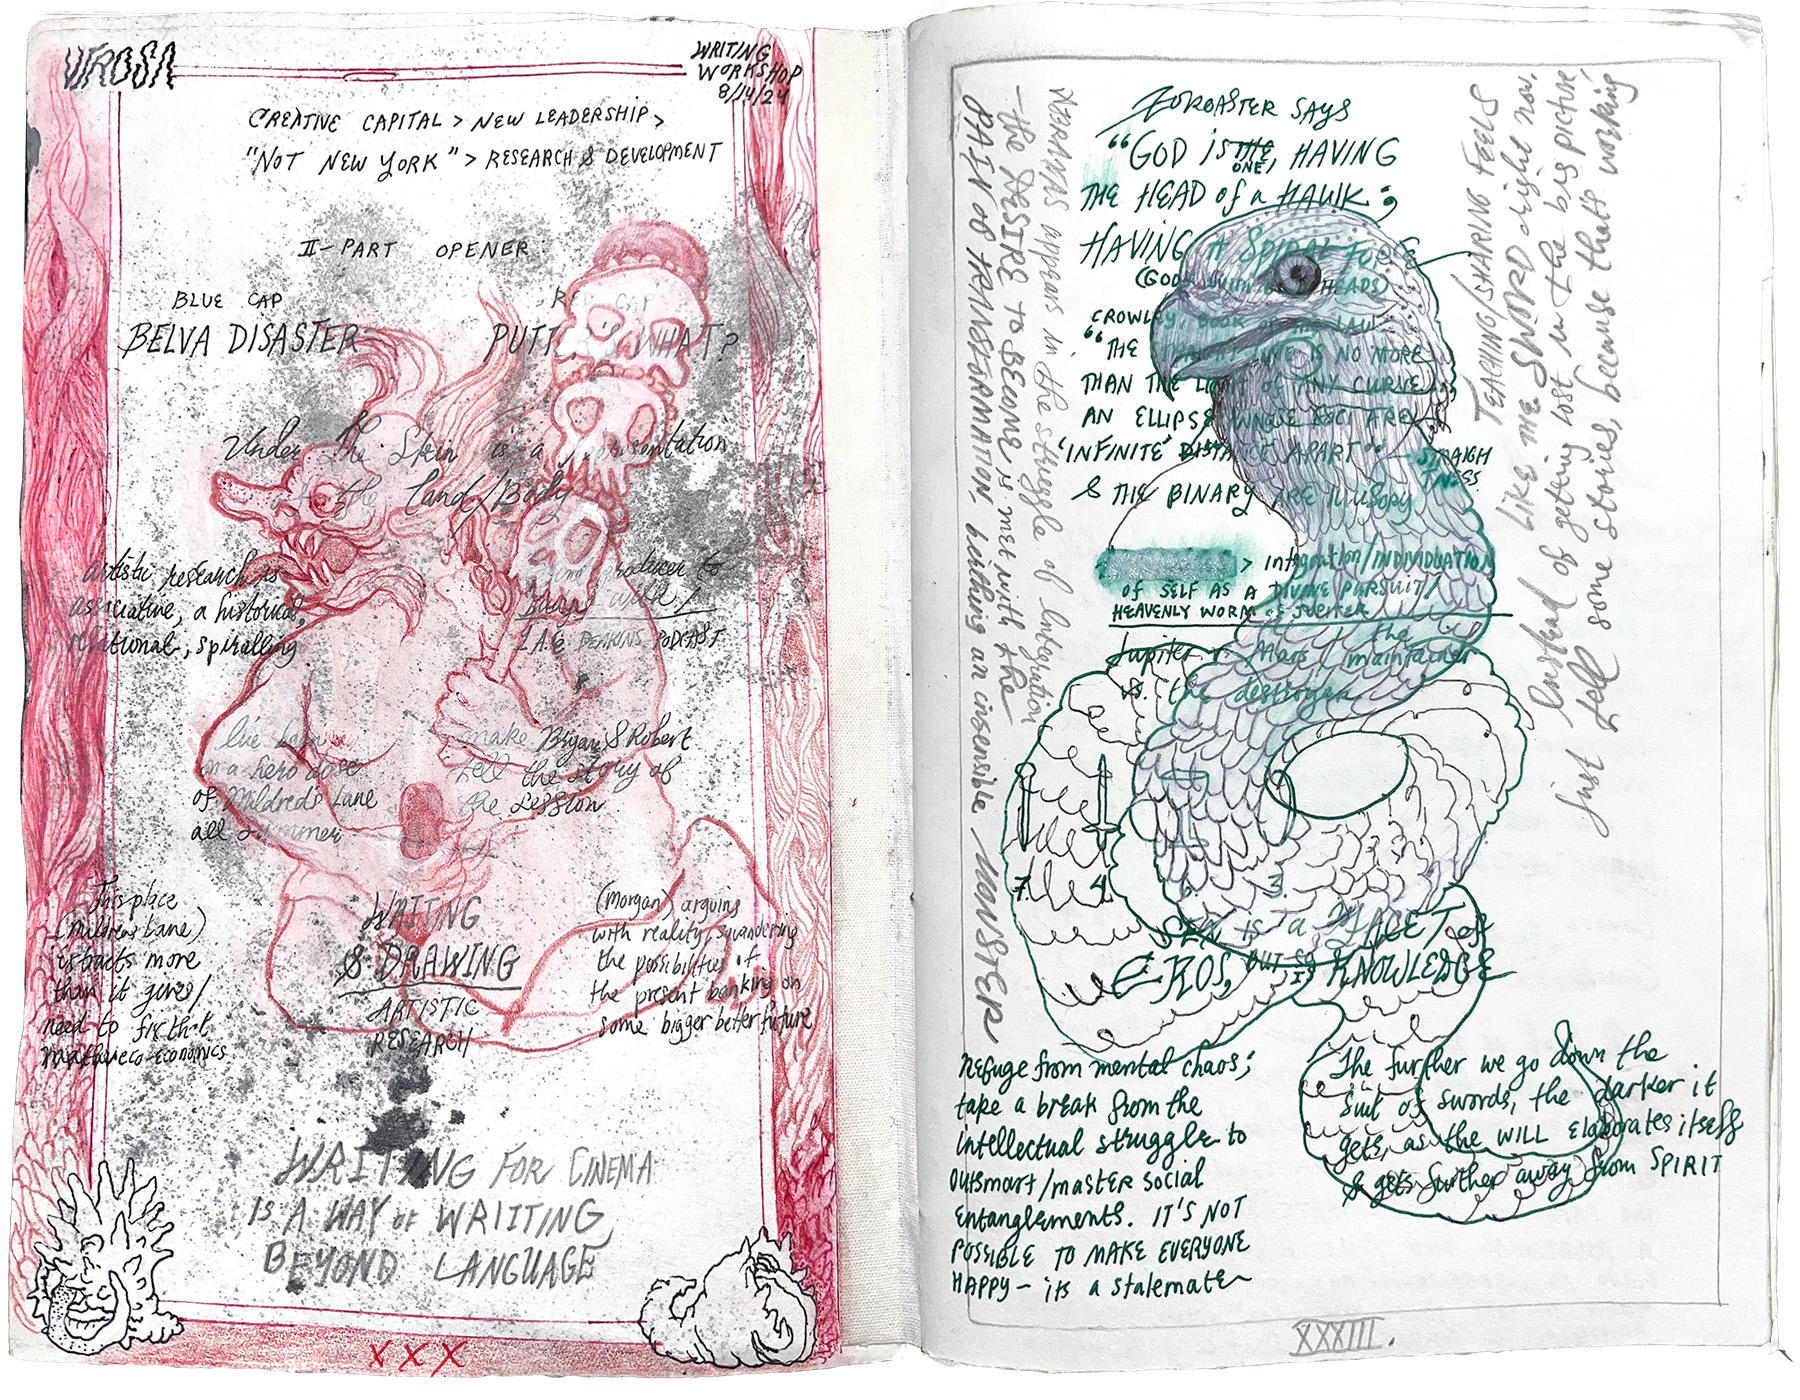 VIROSA
WRITING
WORKSHOP
8/14/24
CREATIVE CAPITAL > NEW LEADERSHIP >
"NOT NEW YORK" > RESEARCH & DEVELOPMENT
II-PART OPENER:
BLUE CAP
BELVA DISASTER
RED CAP
WHAT?
Under the Skin is a
of the Land/Body
artistic research is
associative, a historical,
relational, spiralling
producer to
DEAKINS PODCAST
on a hero dose
of Mildred's Lane
all summer
make Bryan & Robert
tell the story of
the session
This place
(Mildreds Lane)
extracts more
than it gives/
need to fix that
WRITING
& DRAWING
ARTISTIC
RESEARCH
(Morgan) arguing
with reality, squandering
the possibilities of
the present banking on
some bigger better future
WRITING FOR CINEMA
IS A WAY of WRIITTING
BEYOND LANGUAGE
XXX
appears in the struggle of integration
—the DESIRE to BECOME is met with the
PAIN of TRANSFORMATION, birthing an insensible MONSTER
ZOROASTER SAYS
"GOD is THE ONE, HAVING
THE HEAD of a HAWK;
HAVING A SPIRAL FORCE
(GOD WITH HEADS)
CROWLEY BOOK OF THE LAW
"THE STRAIGHT LINE IS NO MORE
THAN THE LIMIT of ANY CURVE,
AN ELLIPSE WHOSE FOCI ARE
'INFINITE' DISTANCE APART" STRAIGH
TNESS
& THE BINARY ARE ILLUSORY
> integration/INDIVIDUATION
OF SELF AS A DIVINE PURSUIT/
HEAVENLY WORM of JUPITER
Jupiter v. Mars / the maintainer
vs. the destroyer
7. 4. 6. 3.
SEX is a FACET of
EROS, BUT SO IS KNOWLEDGE
Refuge from mental chaos;
take a break from the
intellectual struggle to
outsmart/master social
entanglements. IT'S NOT
POSSIBLE TO MAKE EVERYONE
HAPPY — its a stalemate
The further we go down the
suit of swords, the darker it
gets, as the WILL elaborates itself
& gets further away from SPIRIT
TEACHING/SHARING FEELS
LIKE the SWORD right now.
Instead of getting lost in the big picture,
just tell some stories, because that's working
XXXIII.